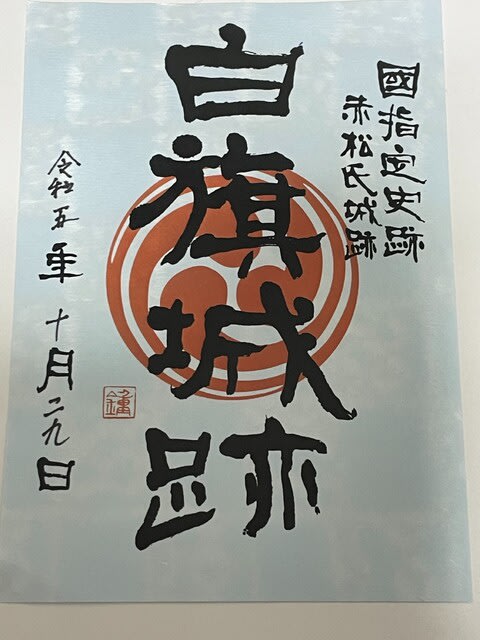 國指定史跡
赤松氏城跡
白旗城跡
令和五年 十月二九日
鍾